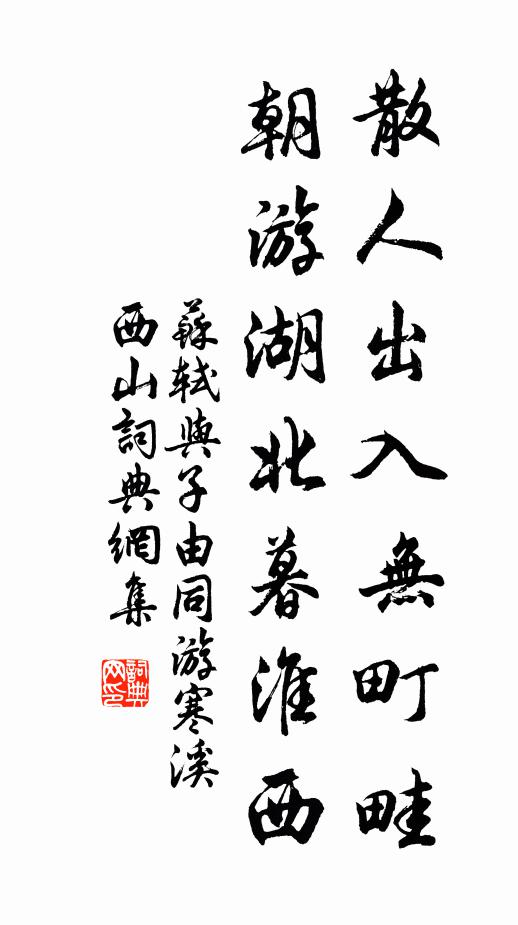 散人出入無町畦
朝游湖北暮淮西
蘇軾與子由同游寒溪
西山詞典網集
詞典网印